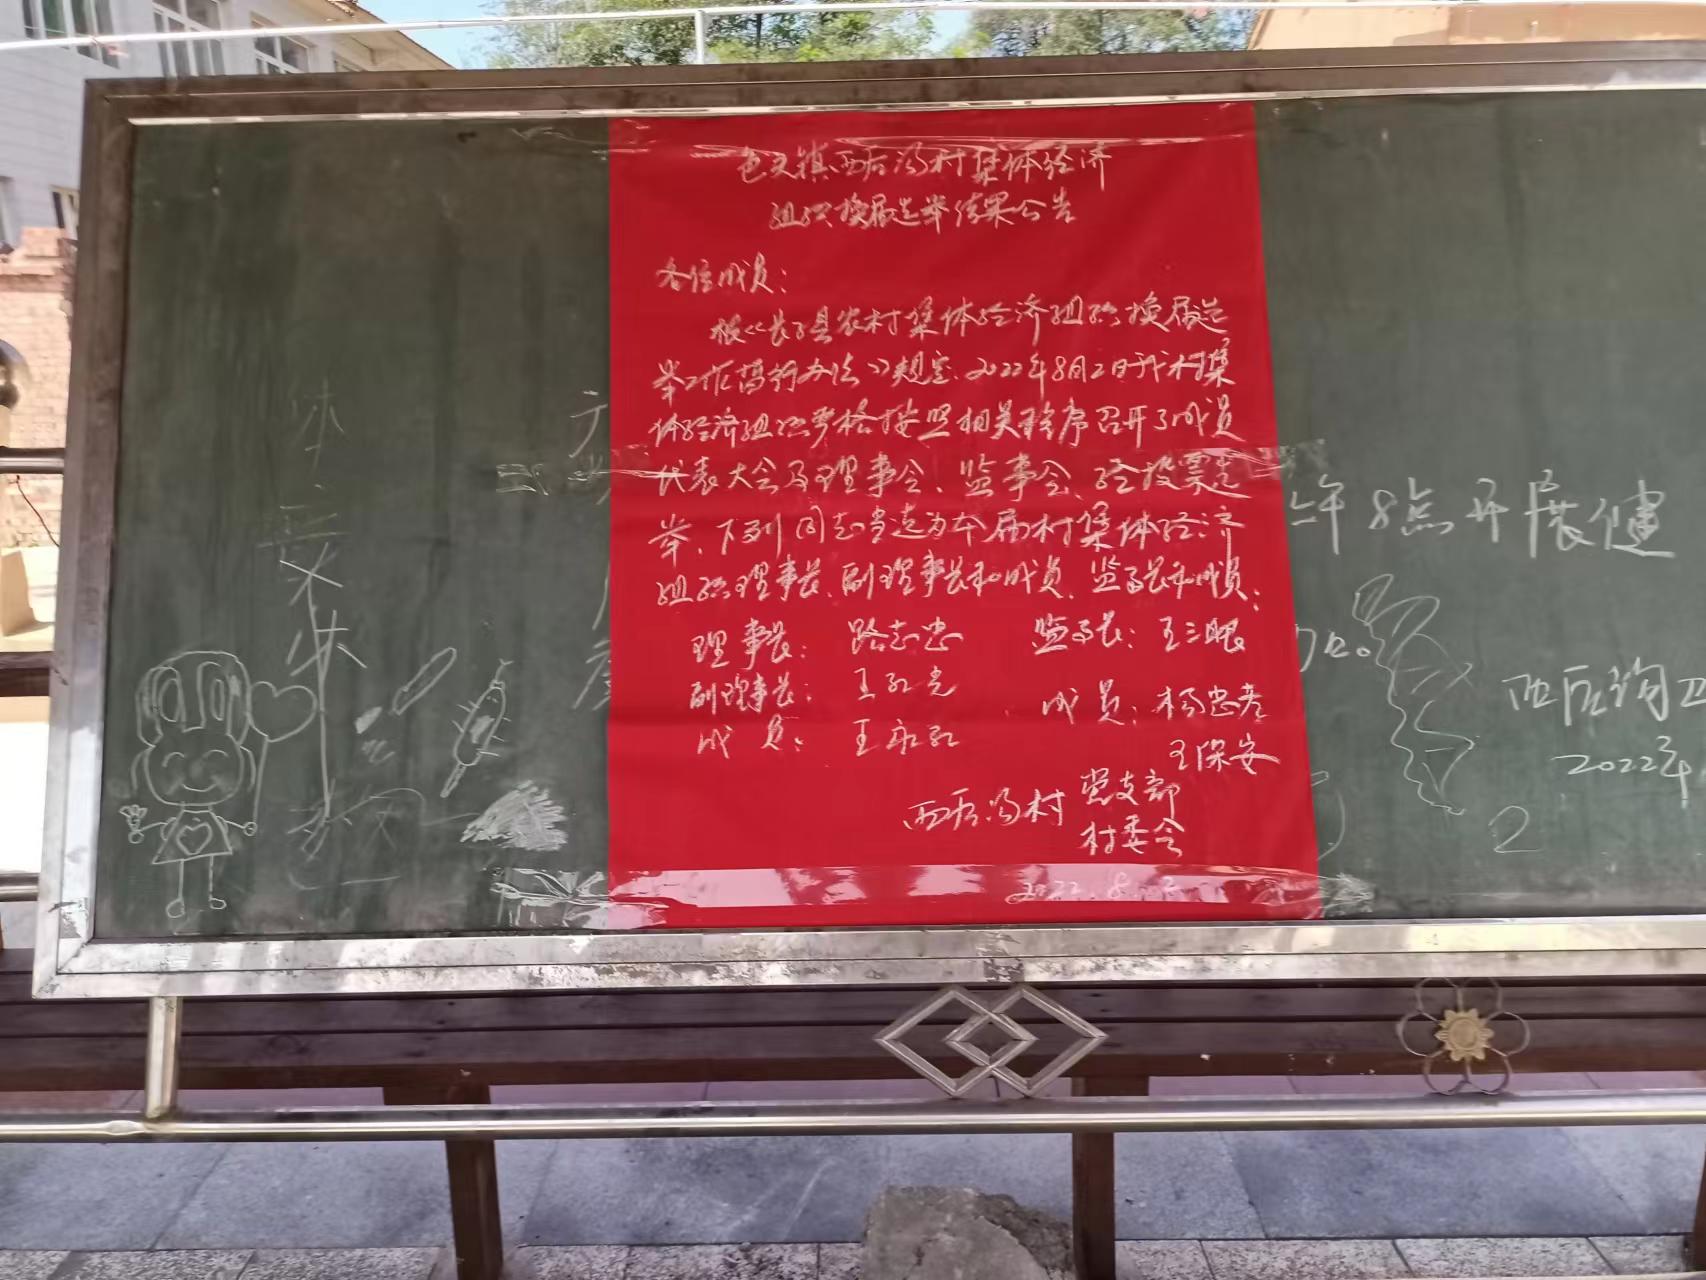 色头镇西后沟村集体经济
组织换届选举结果公告
各位成员：
根《长子县农村集体经济组织换届选
举工作暂行办法》规定、2022年8月2日我村集
体经济组织严格按照相关程序召开了成员
代表大会及理事会、监事会、经投票选
举、下列同志当选为本届村集体经济
组织理事长、副理事长和成员、监事长和成员：
理事长： 路志忠 监事长： 王三眼
副理事长： 王红光 成员： 杨忠彦
成员： 王永红 王保安
西后沟村 党支部
村委会
2022.8.2
午8点开展健
加。
西后沟卫
2022年
2